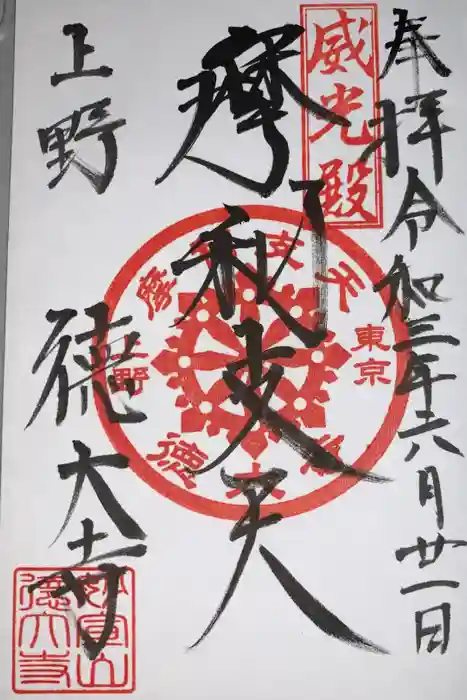 奉拝
令和三年六月廿一日
威光殿
摩利支天
上野
徳大寺
東京
上野
徳大寺